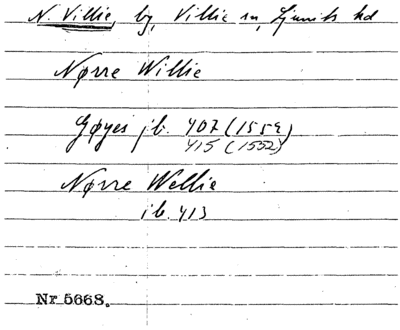 N. Villie, by, Villie sn, Ljunits hd
Nørre Willie
Gøyes jb. 407 (1552)
415 (1552)
Nørre Wellie
ib. 413
Nr 5668.